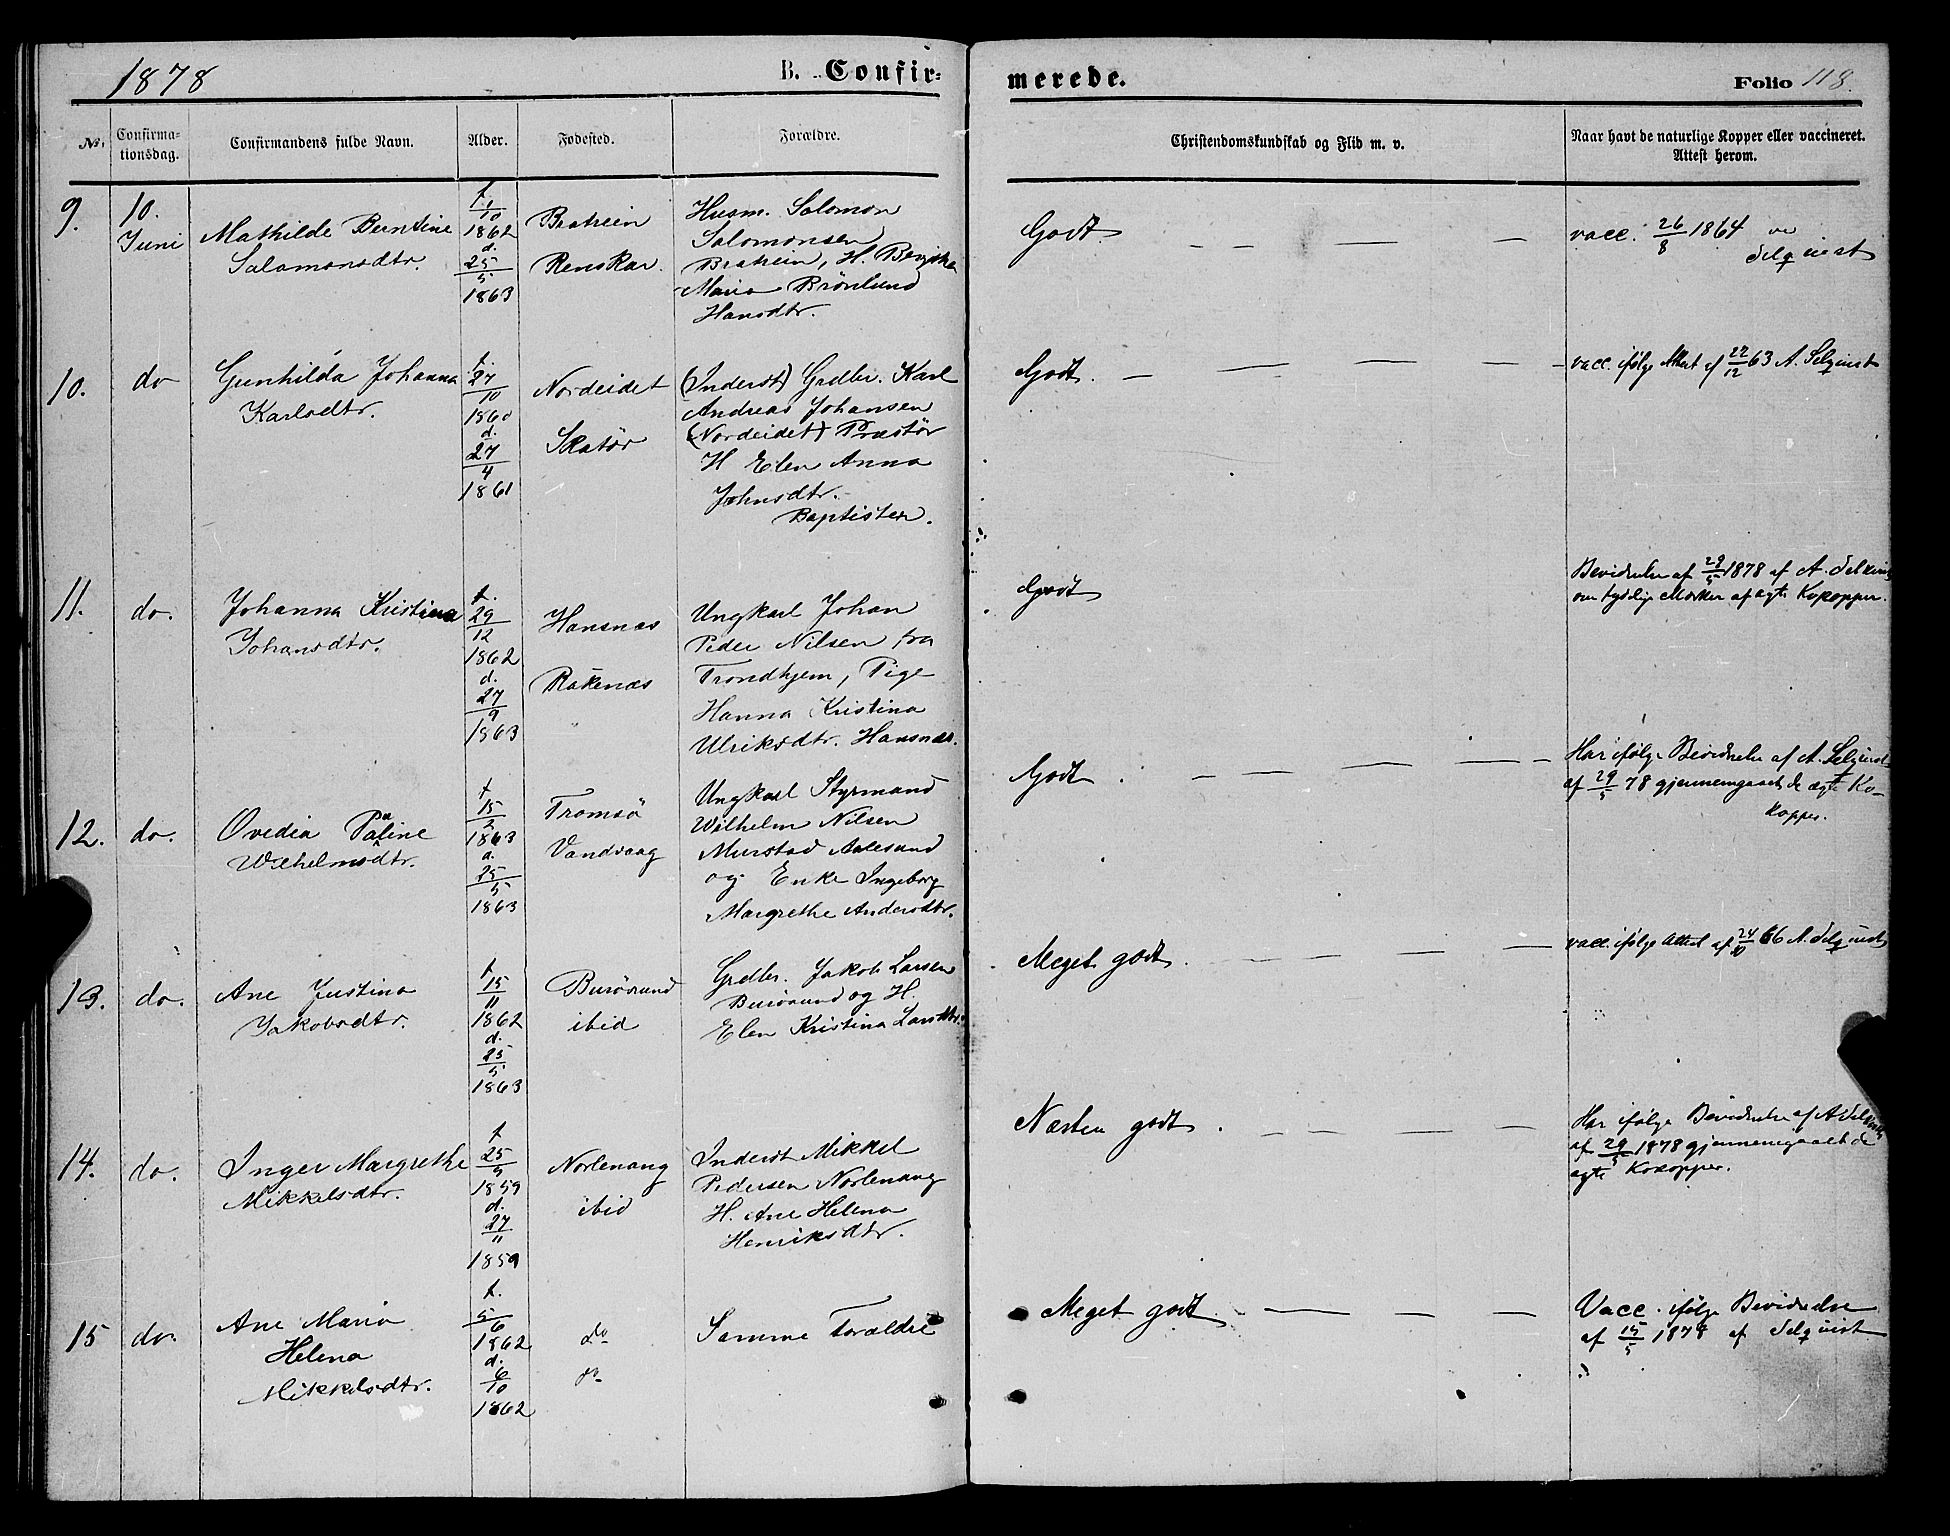 1878
B. Confirmerede.
Folio 118.
No.
Confirmationsdag.
Confirmandens fulde Navn.
Alder.
Fødested.
Forældre.
Christendomskundskab og Flid m. v.
Naar havt de naturlige Kopper eller vaccineret.
Attest herom.
9.
10.
Juni
Mathilde Berntine
Salomonsdtr.
f. 1/10
1862
d.
25/5
1863
Bratrein
Renskar.
Husm. Salomon
Salomonsen
Bratrein, H.
Maria Brönlund
Hansdtr.
Godt.
vacc. 26/8 1864 ved
Selquist
10.
do
Gunhilda Johanna
Karlsdtr.
f.
27/10
1860
d.
27/4
1861
Nordeidet
Skatör
(Inderst) Grdbr. Karl
Andreas Johansen
(Nordeidet) Præstör
H Elen Anna
Johnsdtr.
Baptister.
Godt.
vacc. ifølge Attest af 22/12 63 A. Selquist
11.
do.
Johanna Kristina
Johansdtr.
f.
29/12
1862
d.
27/9
1863
Hansnæs
Rakenæs
Ungkarl Johan
Peder Nilsen fra
Trondhjem, Pige
Hanna Kristina
Ulriksdtr. Hansnæs.
Godt
Bevidnelse af 29/5 1878 af A. Selquist
om tydelige Mærker af ægte Kokopper.
12.
do.
Ovedia Paline
Wilhelmsdtr.
f
15/2
1863
d.
25/5
1863
Tromsö
Vandvaag
Ungkarl Styrmand
Wilhelm Nilsen
Murstad Aalesund
og Enke Ingeborg
Margrethe Andersdtr.
Godt.
Har ifølge Bevidnelse af A. Selquist
af 29/5 78 gjennemgaaet de ægte Ko-
kopper.
13.
do.
Ane Justina
Jakobsdtr.
f
15/11
1862
d.
25/5
1863
Burösund
ibid
Grdbr. Jakob Larsen
Burösund og H.
Elen Kristina Larsdtr.
Meget godt.
vacc. ifølge Attest af 24/10 66 A. Selquist
14.
do.
Inger Margrethe
Mikkelsdtr.
f
25/5
1859
d.
27/11
1859
Norlenang
ibid
Inderst Mikkel
Pedersen Norlenang
H. Ane Helena
Henriksdtr.
Næsten godt.
Har ifølge Bevidnelse af A Selquist
af 29/5 1878 gjennemgaaet de
ægte Kokopper.
15
do.
Ane Maria
Helena
Mikkelsdtr.
f.
5/6
1862
d.
6/10
1862
do
do
Samme Forældre
Meget godt.
Vacc. ifølge Bevidnelse
af 15/5 1878 af Selquist